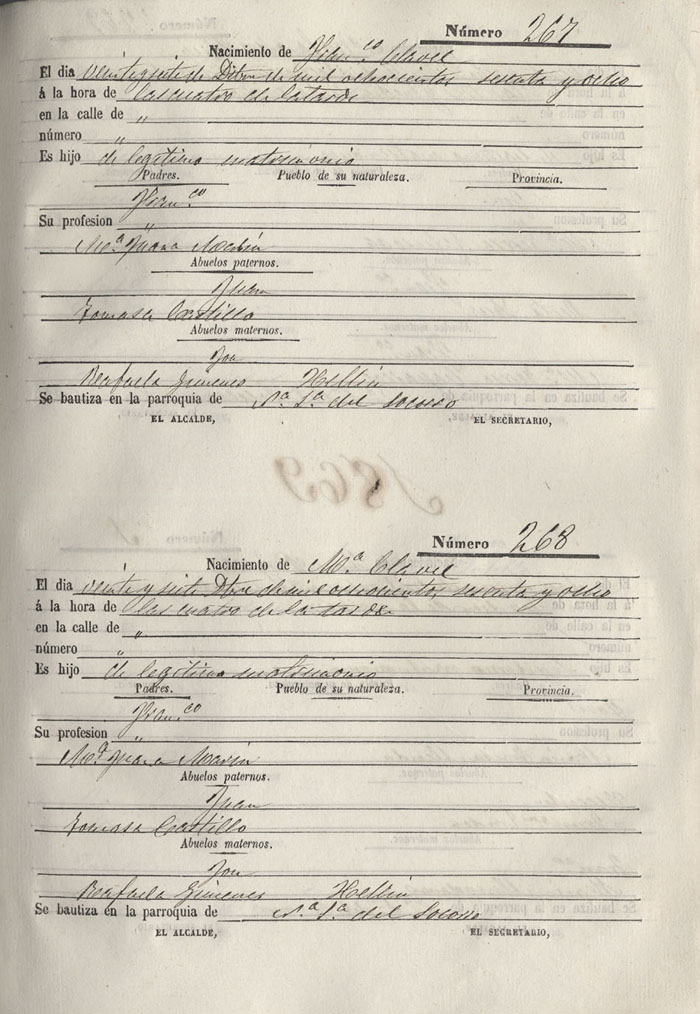 Número 267
Nacimiento de Fran.co Clavel
El dia veinte y siete de Dbre de mil ochocientos sesenta y ocho
á la hora de las cuatro de la tarde
en la calle de "
número "
Es hijo de legitimo matrimonio
Padres. Pueblo de su naturaleza. Provincia.
Fran.co
Su profesion "
M.a Juana Marin
Abuelos paternos.
Juan
Tomasa Castillo
Abuelos maternos.
Rafaela Gimenes Hellin
Se bautiza en la parroquia de N.a S.a del Socorro
EL ALCALDE, EL SECRETARIO,
1869
Número 268
Nacimiento de M.a Clavel
El dia veinte y siete Dbre de mil ochocientos sesenta y ocho
á la hora de las cuatro de la tarde
en la calle de "
número "
Es hijo de legitimo matrimonio
Padres. Pueblo de su naturaleza. Provincia.
Fran.co
Su profesion "
M.a Juana Marin
Abuelos paternos.
Juan
Tomasa Castillo
Abuelos maternos.
Rafaela Gimenes Hellin
Se bautiza en la parroquia de N.a S.a del Socorro
EL ALCALDE, EL SECRETARIO,